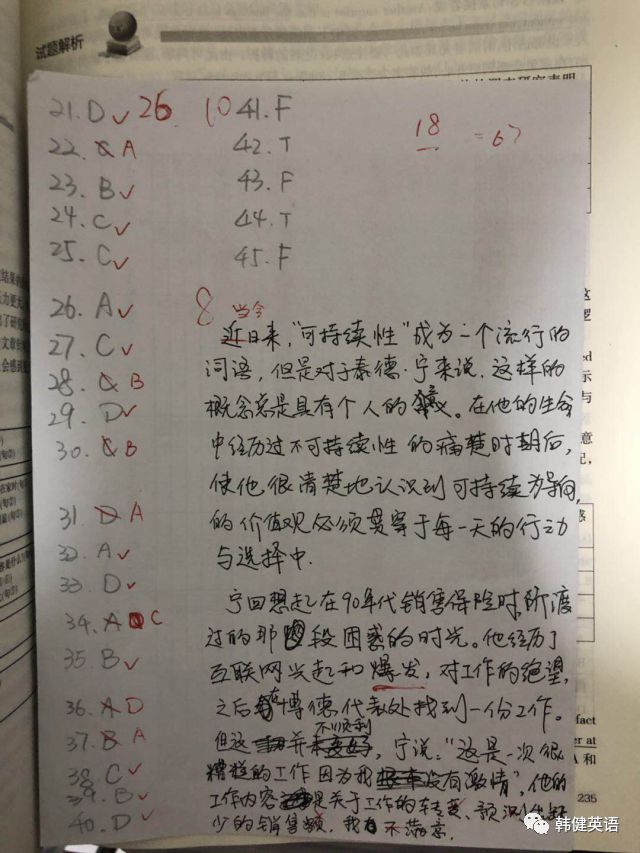 试题解析
21. D ✓ 26
22. A
23. B ✓
24. C ✓
25. C ✓
26. A ✓
27. C ✓
28. B
29. D ✓
30. B
31. D A
32. A ✓
33. D ✓
34. A C
35. B ✓
36. A D
37. B A
38. C ✓
39. B ✓
40. D ✓
10 41. F
42. T
43. F
44. T
45. F
18 = 67
8 当今
近日来，“可持续性”成为一个流行的
词语，但是对于泰德·宁来说，这样的
概念总是具有个人的 。在他的生命
中经历过不可持续性的痛楚时期后，
使他很清楚地认识到可持续为导向
的价值观必须贯穿于每一天的行动
与选择中.
宁回想起在90年代销售保险时所渡
过的那段困惑的时光。他经历了
互联网兴起和爆发，对工作的绝望，
之后在博德代表处找到一份工作。
不顺利
但这 并 ，宁说：“这是一次很
糟糕的工作因为我 没有激情”，他的
工作内容 是关于工作的转变、预测
少的销售额，我 不满意.
fact
er at
A 和
235
韩健英语